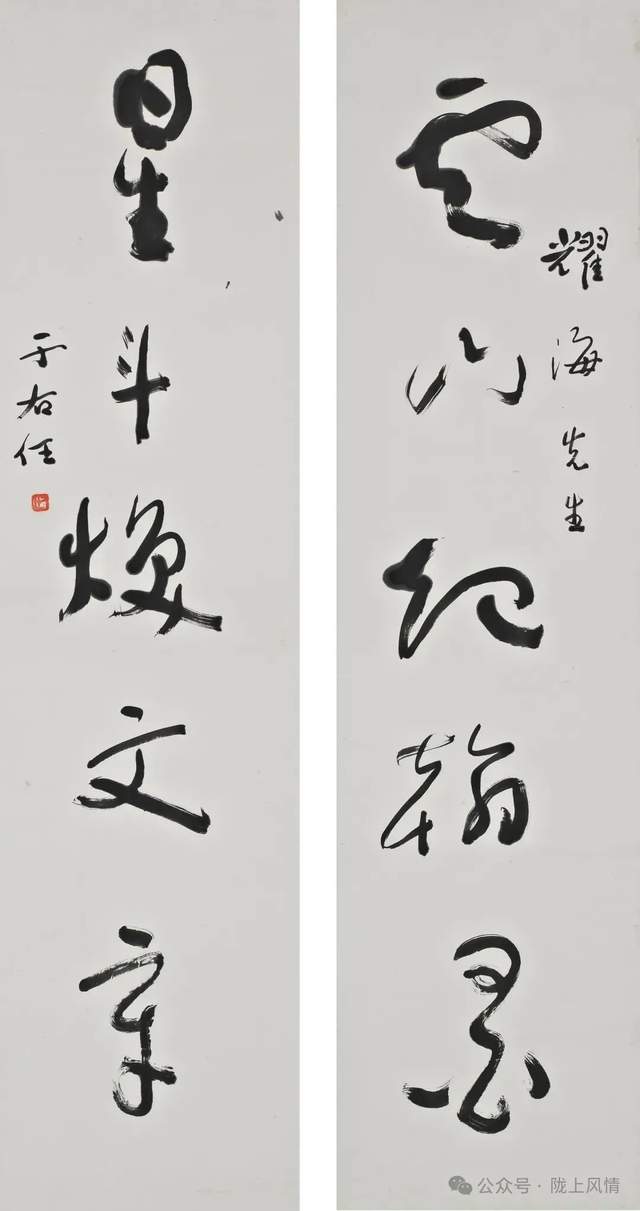 云山起翰墨
耀海先生
星斗焕文章
于右任
公众号 · 陇上风情